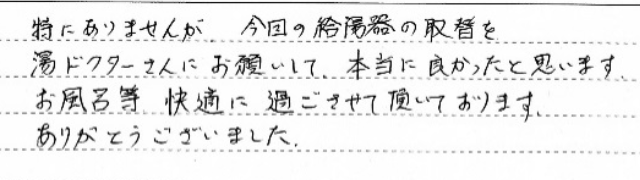 特にありませんが、今回の給湯器の取替を
湯ドクターさんにお願いして、本当に良かったと思います。
お風呂等 快適に過ごさせて頂いております。
ありがとうございました。